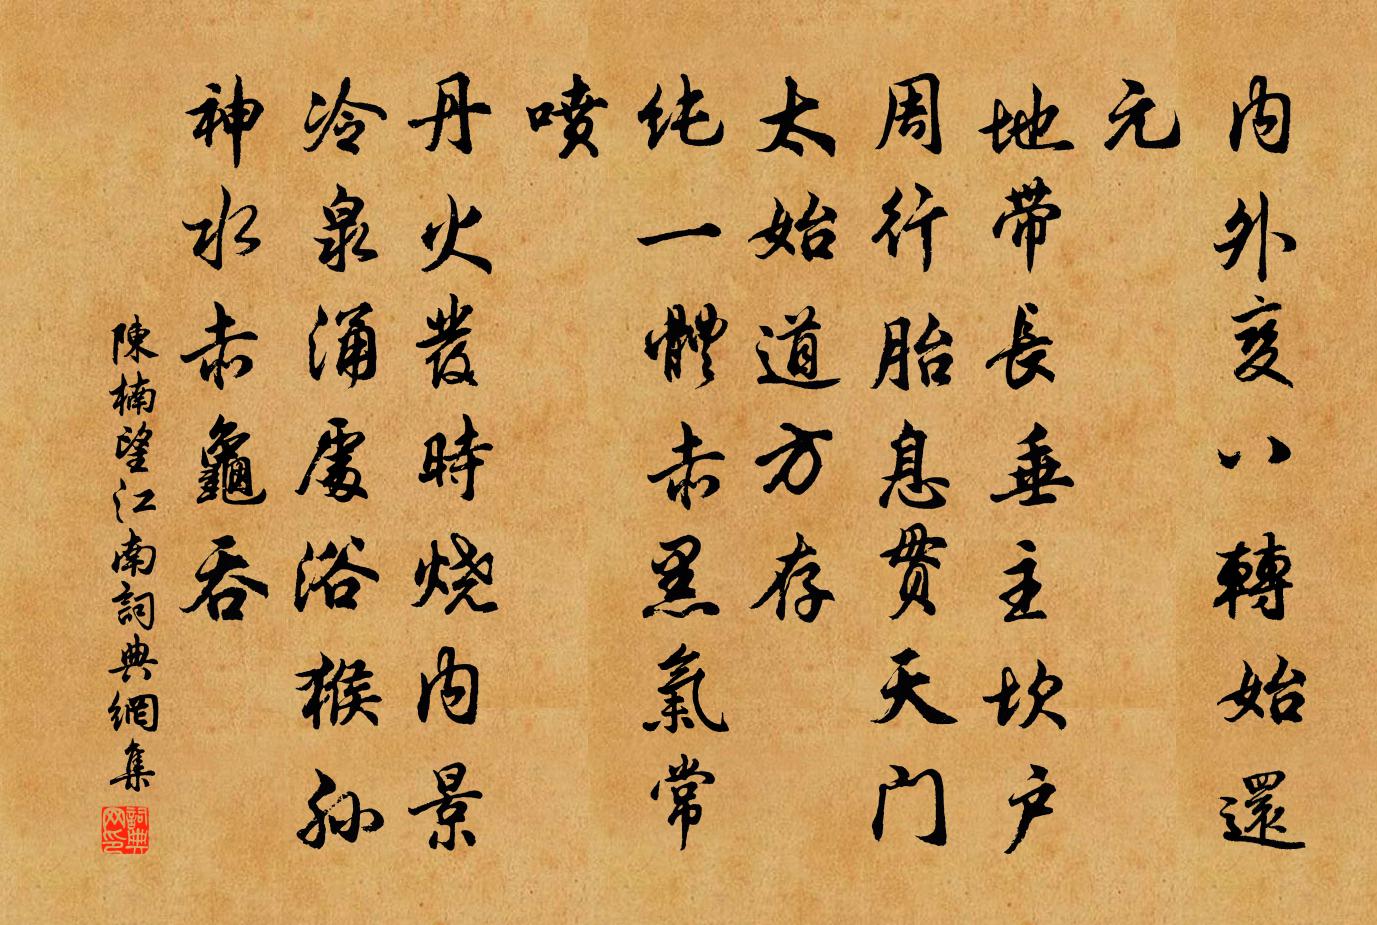 内外变八轉始還
元
地带長垂主坎户
周行胎息贯天门
太始道方存
纯一體赤黑氣常
喷
丹火發時烧内景
冷泉涌處浴猴孙
神水赤龜吞
陳楠望江南詞典網集
詞典网印